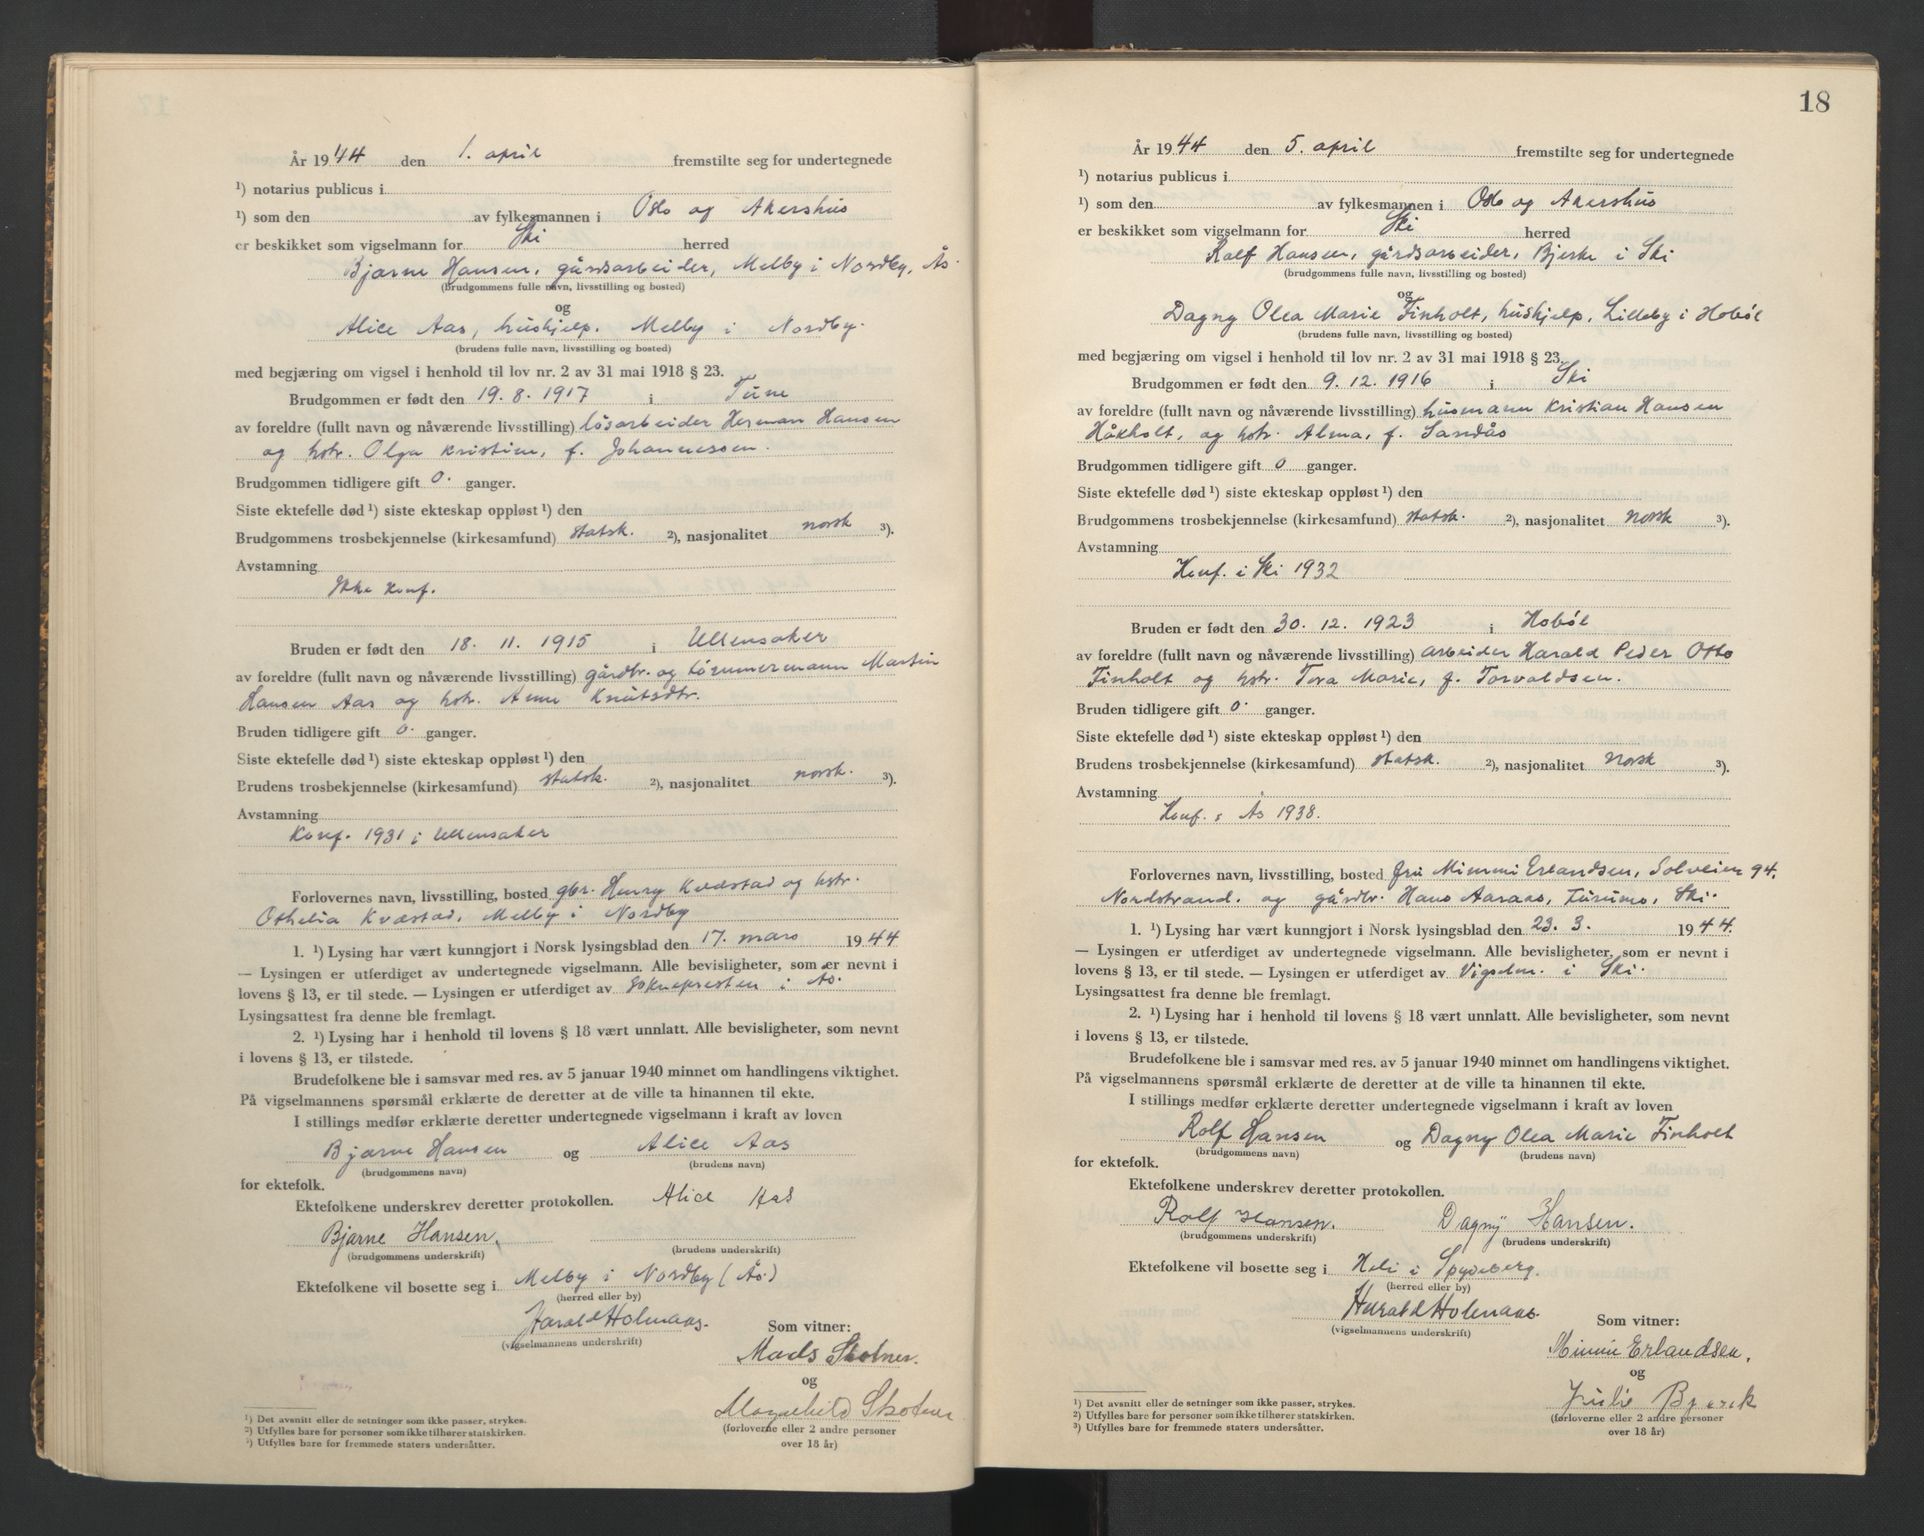 År 1944 den 1. april fremstilte seg for undertegnede
¹) notarius publicus i
¹) som den av fylkesmannen i Oslo og Akershus
er beskikket som vigselmann for Ski herred
Bjarne Hansen, gårdsarbeider, Melby i Nordby, Ås.
(brudgommens fulle navn, livsstilling og bosted)
og
Alice Aas, hushjelp. Melby i Nordby.
(brudens fulle navn, livsstilling og bosted)
med begjæring om vigsel i henhold til lov nr. 2 av 31 mai 1918 § 23.
Brudgommen er født den 19. 8. 1917 i Tune
av foreldre (fullt navn og nåværende livsstilling) løsarbeider Herman Hansen
og hstr. Olga Kristine, f. Johannessen.
Brudgommen tidligere gift 0. ganger.
Siste ektefelle død ¹) siste ekteskap oppløst ¹) den
Brudgommens trosbekjennelse (kirkesamfund) statsk. ²), nasjonalitet norsk ³).
Avstamning
Ikke konf.
Bruden er født den 18. 11. 1915 i Ullensaker
av foreldre (fullt navn og nåværende livsstilling) gårdbr. og tømmermann Martin
Hansen Aas og hstr. Anne Knutsdtr.
Bruden tidligere gift 0. ganger.
Siste ektefelle død ¹) siste ekteskap oppløst ¹) den
Brudens trosbekjennelse (kirkesamfund) statsk. ²), nasjonalitet norsk. ³).
Avstamning
Konf. 1931 i Ullensaker
Forlovernes navn, livsstilling, bosted gbr. Henry Kvæstad og hstr.
Othelia Kvæstad, Melby i Nordby
1. ¹) Lysing har vært kunngjort i Norsk lysingsblad den 17. mars 1944
— Lysingen er utferdiget av undertegnede vigselmann. Alle bevisligheter, som er nevnt i
lovens § 13, er til stede. — Lysingen er utferdiget av Soknepresten i Ås.
Lysingsattest fra denne ble fremlagt.
2. ¹) Lysing har i henhold til lovens § 18 vært unnlatt. Alle bevisligheter, som nevnt
i lovens § 13, er tilstede.
Brudefolkene ble i samsvar med res. av 5 januar 1940 minnet om handlingens viktighet.
På vigselmannens spørsmål erklærte de deretter at de ville ta hinannen til ekte.
I stillings medfør erklærte deretter undertegnede vigselmann i kraft av loven
Bjarne Hansen og Alice Aas
(brudgommens navn) (brudens navn)
for ektefolk.
Ektefolkene underskrev deretter protokollen. Alice Aas
Bjarne Hansen.
(brudgommens underskrift) (brudens underskrift)
Ektefolkene vil bosette seg i Melby i Nordby (Ås)
(herred eller by)
Harald Holmaas.
(vigselmannens underskrift)
Som vitner:
Mads Skotner.
og
Magnhild Skotner
(forloverne eller 2 andre personer
over 18 år)
¹) Det avsnitt eller de setninger som ikke passer, strykes.
²) Utfylles bare for personer som ikke tilhører statskirken.
³) Utfylles bare for fremmede staters undersåtter.
18
År 1944 den 5. april fremstilte seg for undertegnede
¹) notarius publicus i
¹) som den av fylkesmannen i Oslo og Akershus
er beskikket som vigselmann for Ski herred
Rolf Hansen, gårdsarbeider, Bjerke i Ski
(brudgommens fulle navn, livsstilling og bosted)
og
Dagny Olea Marie Finholt, hushjelp, Lilleby i Hobøl
(brudens fulle navn, livsstilling og bosted)
med begjæring om vigsel i henhold til lov nr. 2 av 31 mai 1918 § 23.
Brudgommen er født den 9. 12. 1916 i Ski
av foreldre (fullt navn og nåværende livsstilling) husmann Kristian Hansen
Håkholt, og hstr. Alma, f. Sandås
Brudgommen tidligere gift 0 ganger.
Siste ektefelle død ¹) siste ekteskap oppløst ¹) den
Brudgommens trosbekjennelse (kirkesamfund) statsk. ²), nasjonalitet norsk ³).
Avstamning
Konf. i Ski 1932
Bruden er født den 30. 12. 1923 i Hobøl
av foreldre (fullt navn og nåværende livsstilling) arbeider Harald Peder Otto
Finholt og hstr. Tora Marie, f. Torvaldsen.
Bruden tidligere gift 0. ganger.
Siste ektefelle død ¹) siste ekteskap oppløst ¹) den
Brudens trosbekjennelse (kirkesamfund) statsk. ²), nasjonalitet norsk ³).
Avstamning
Konf. i Ås 1938.
Forlovernes navn, livsstilling, bosted fru Mimmi Erlandsen, Solveien 94,
Nordstrand. og gårdbr. Hans Aaraas, Furumo, Ski.
1. ¹) Lysing har vært kunngjort i Norsk lysingsblad den 23. 3. 1944.
— Lysingen er utferdiget av undertegnede vigselmann. Alle bevisligheter, som er nevnt i
lovens § 13, er til stede. — Lysingen er utferdiget av Vigselm. i Ski.
Lysingsattest fra denne ble fremlagt.
2. ¹) Lysing har i henhold til lovens § 18 vært unnlatt. Alle bevisligheter, som nevnt
i lovens § 13, er tilstede.
Brudefolkene ble i samsvar med res. av 5 januar 1940 minnet om handlingens viktighet.
På vigselmannens spørsmål erklærte de deretter at de ville ta hinannen til ekte.
I stillings medfør erklærte deretter undertegnede vigselmann i kraft av loven
Rolf Hansen og Dagny Olea Marie Finholt
(brudgommens navn) (brudens navn)
for ektefolk.
Ektefolkene underskrev deretter protokollen.
Rolf Hansen. Dagny Hansen.
(brudgommens underskrift) (brudens underskrift)
Ektefolkene vil bosette seg i Heli i Spydeberg.
(herred eller by)
Harald Holmaas.
(vigselmannens underskrift)
Som vitner:
Mimmi Erlandsen.
og
Julie Bjerck
(forloverne eller 2 andre personer
over 18 år)
¹) Det avsnitt eller de setninger som ikke passer, strykes.
²) Utfylles bare for personer som ikke tilhører statskirken.
³) Utfylles bare for fremmede staters undersåtter.